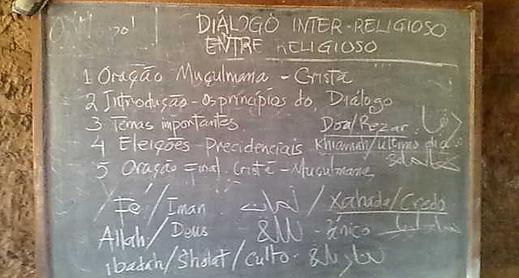 DIÁLOGO INTER-RELIGIOSO
ENTRE RELIGIOSO
1 Oração Muçulmana - Cristã
2 Introdução - Os princípios do Diálogo
3 Temas importantes Doa/Rezar
4 Eleições - Precidenciais Khiamah/último dia
5 Oração Final Cristã - Muçulmana
Fé / Iman / Xahada / Credo
Allah / Deus الله - Único
ibadah/Sholat / Culto